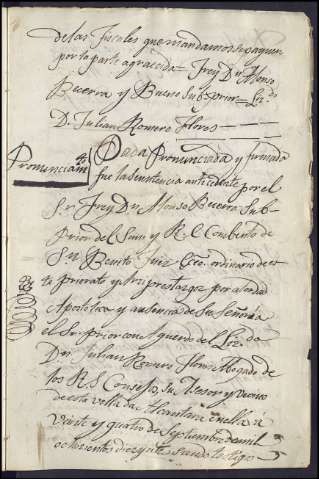 de los fiscales que mandamos se paguen
por la parte agraciada = Frey Dn. Alonso
Becerra y Bueno Sub-prior = Lizdo.
Dn. Julian Romero Flores
Pronunciam.to
Dada Pronunciada y firmada
fue la Sentencia antecedente por el
Sor. Frey Dn. Alonso Becerra Sub-
Prior del Sacro y Rl. Combento de
Sn. Benito Juez Ecco. ordinario de es-
te Priorato y Arciprestazgo por autoridad
Apostolica y ausencia de su Señoria
el Sor. Prior con Aquerdo del Lizdo.
Dn. Julian Romero Flores Abogado de
los Rs. Consejos, su Asesor y vecino
de esta villa de Alcantara en ella a
veinte y quatro de Septiembre de mil
ochocientos diez y siete siendo testigos